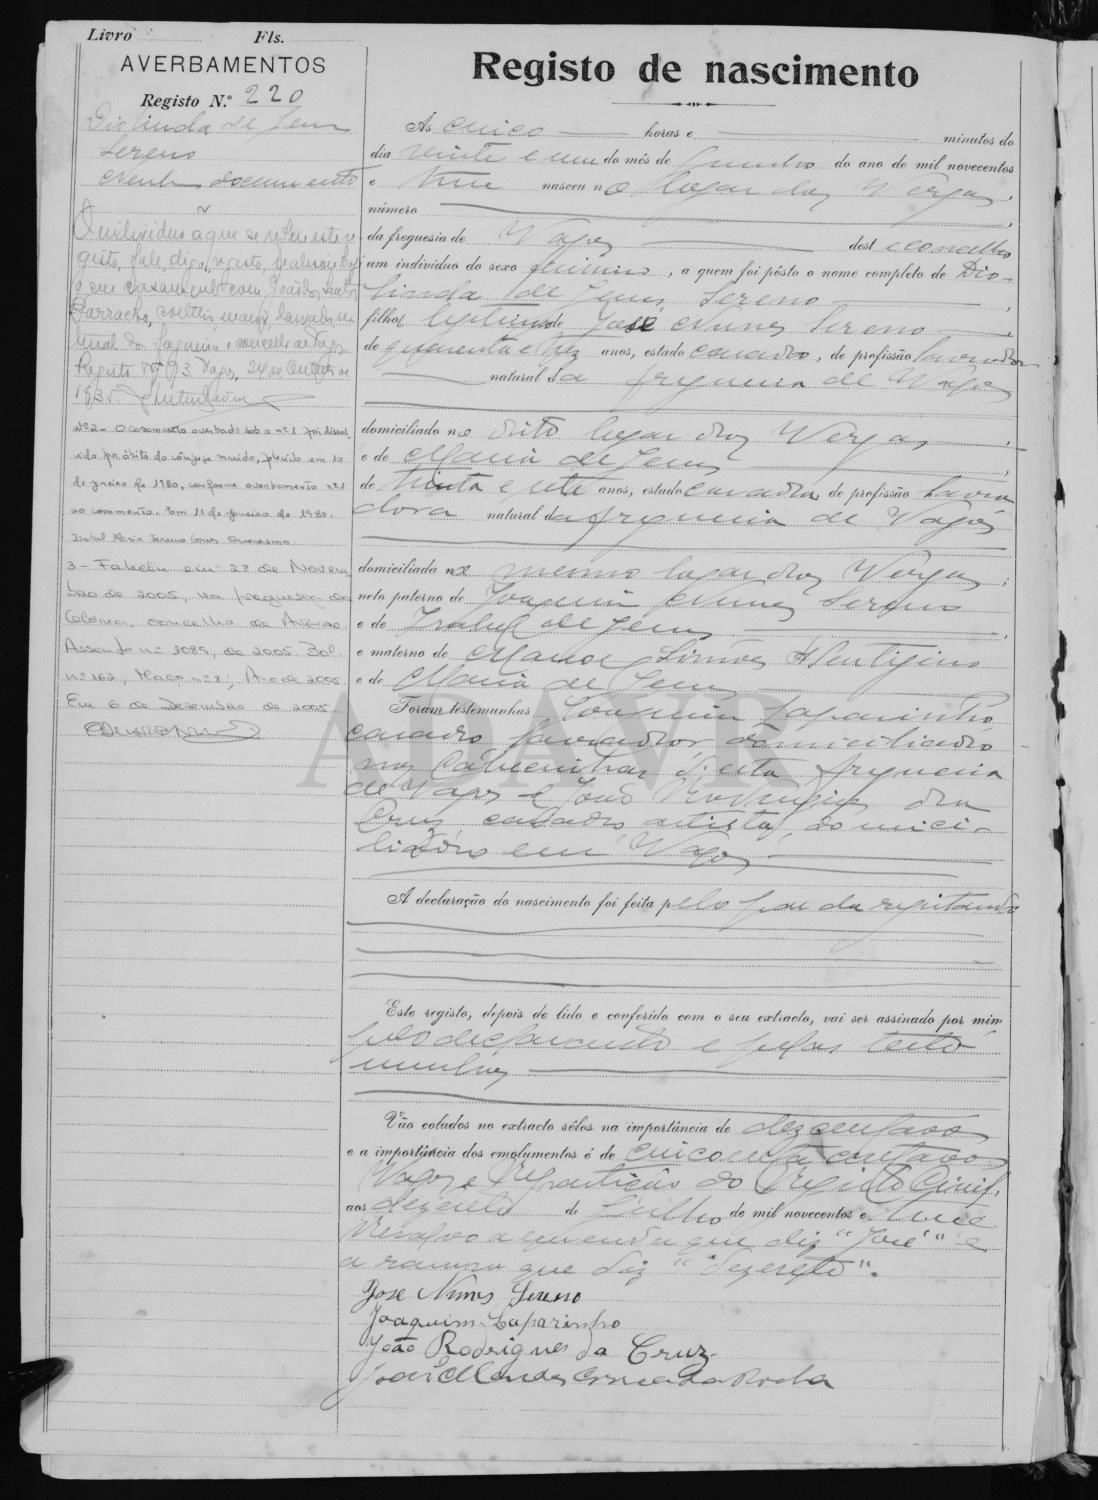 Livro Fls.
AVERBAMENTOS
Registo N.º 220
Diolinda de Jesus
Sereno
O individuo a que se refere este re-
gisto,
Parracho,
Registo nº 73. Vagos, 24 de Outubro de
Nº 2 - O casamento averbado sob o nº 1 foi dissol
vido por óbito do cônjuge marido, falecido em 10
de janeiro de 1980, conforme averbamento nº 1
ao casamento. Em 11 de janeiro de 1980.
3 - Faleceu em 28 de Novem
bro de 2005, na freguesia da
concelho de Aveiro
Assento nº 1089, de 2005. Bol.
nº 162, Maço nº 8, Ano de 2005
Em 6 de Dezembro de 2005
Registo de nascimento
Ás cinco horas e minutos do
dia vinte e um do mês de Junho do ano de mil novecentos
e treze nasceu no lugar das Vergas,
número
da freguesia de Vagos deste concelho
um individuo do sexo feminino, a quem foi pôsto o nome completo de Dio-
linda de Jesus Sereno
filha legitima de José Nunes Sereno
de quarenta e tres anos, estado casado, de profissão lavrador
natural da freguesia de Vagos
domiciliado no dito lugar das Vergas
e de Maria de Jesus
de trinta e sete anos, estado casada de profissão lavra
dora natural da freguesia de Vagos
domiciliada no mesmo lugar das Vergas;
neto paterno de Joaquim Nunes Sereno
e de Isabel de Jesus
e materno de Manoel Simões
e de Maria de Jesus
Foram testemunhas Joaquim Laparinho
casado lavrador domiciliado
nas d'esta freguesia
de Vagos e João Rodrigues da
Cruz casado, artista, domici-
liado em Vagos
A declaração do nascimento foi feita pelo pae da registanda
Este registo, depois de lido e conferido com o seu extracto, vai ser assinado por mim
pelo declarante e pelas teste
munhas
Vão colados no extracto sêlos na importância de dez centavos
e a importância dos emolumentos é de cincoenta centavos
Vagos e Repartição do Registo Civil,
aos dezesete de Julho de mil novecentos e treze
Resalvo a emenda que diz "José" e
a rasura que diz "dezesete".
José Nunes Sereno
Joaquim Laparinho
João Rodrigues da Cruz
ADAVR